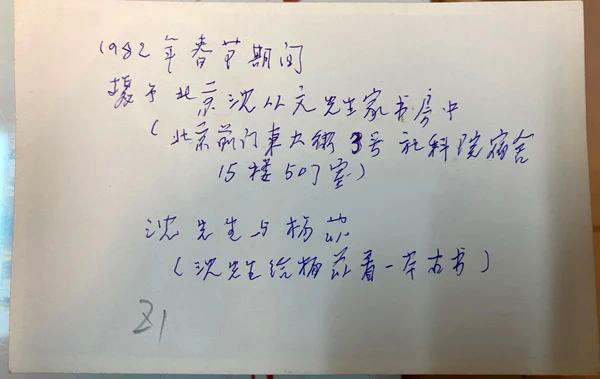 1982年春节期间
摄于北京沈从文先生家书房中
(北京前门東大街3号社科院宿舍
15楼507室)
沈先生与杨苡
(沈先生给杨苡看一本古书)
Z1